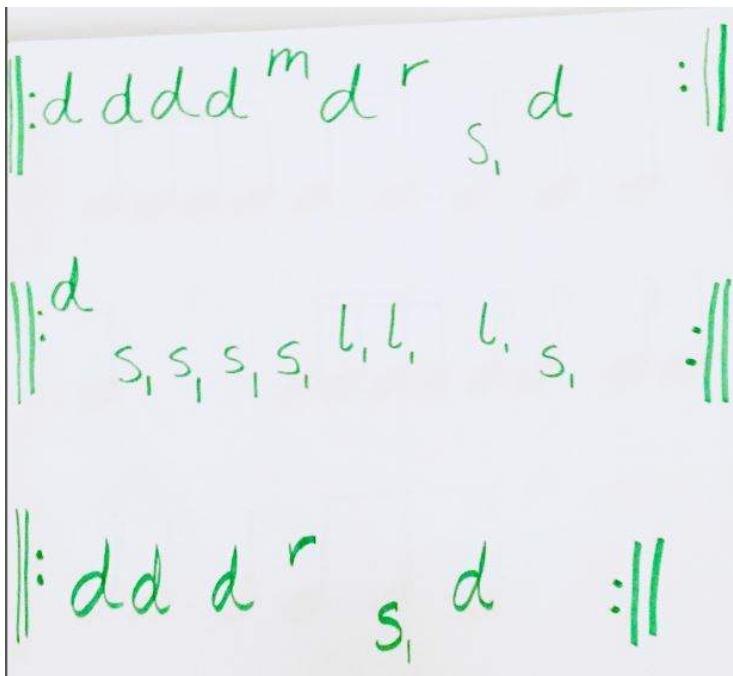 ‖: d d d d m d r s, d :‖
‖: d s, s, s, s, l, l, l, s, :‖
‖: d d d r s, d :‖